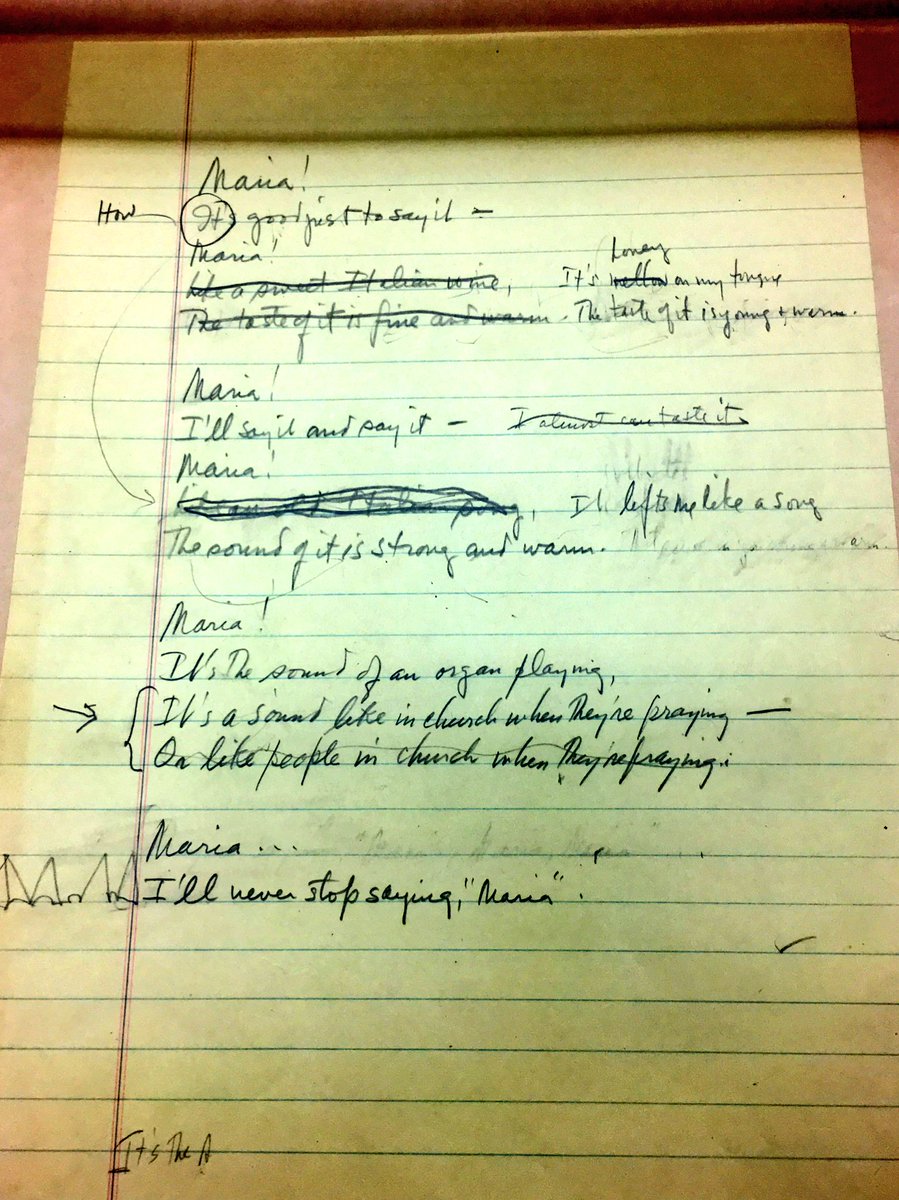 Maria!
How It's good just to say it —
Maria!
Like a sweet Italian wine, It's mellow honey on my tongue
The taste of it is fine and warm. The taste of it is young & warm.
Maria!
I'll say it and say it — I almost can taste it
Maria!
Like an old Italian song, It lifts me like a song
The sound of it is strong and warm.
Maria!
It's the sound of an organ playing,
It's a sound like in church when they're praying —
Or like people in church when they're praying.
Maria ...
I'll never stop saying, "Maria".
It's the A